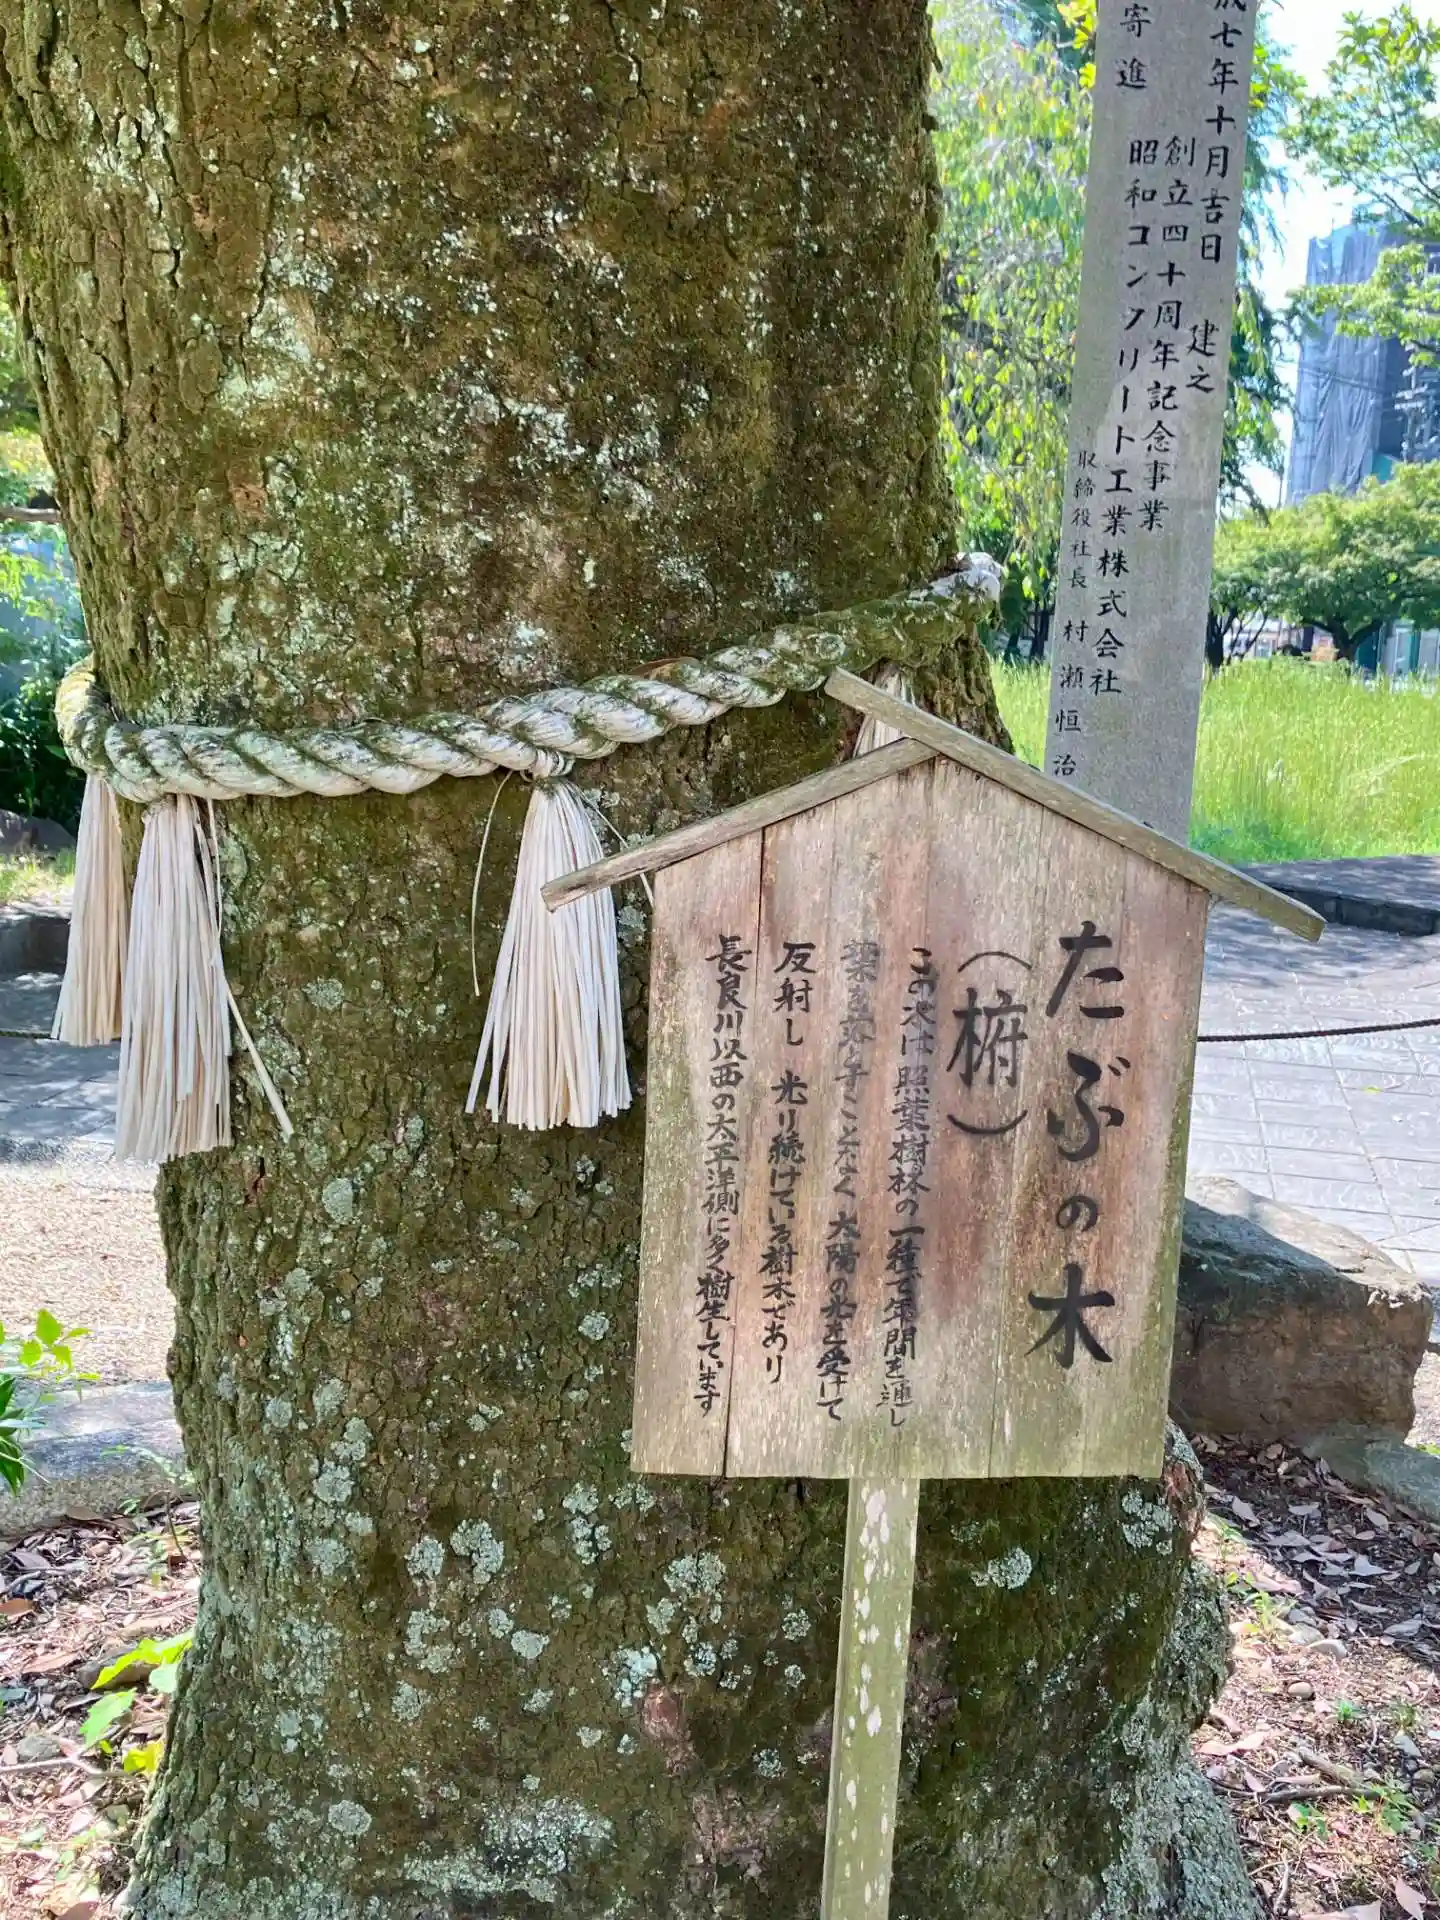 たぶの木
（椨）
この木は照葉樹林の一種で年間を通し
葉を落とすことなく太陽の光を受けて
反射し 光り続けている樹木であり
長良川以西の太平洋側に多く樹生しています
成七年十月吉日 建之
創立四十周年記念事業
寄進 昭和コンクリート工業株式会社
取締役社長 村瀬恒治